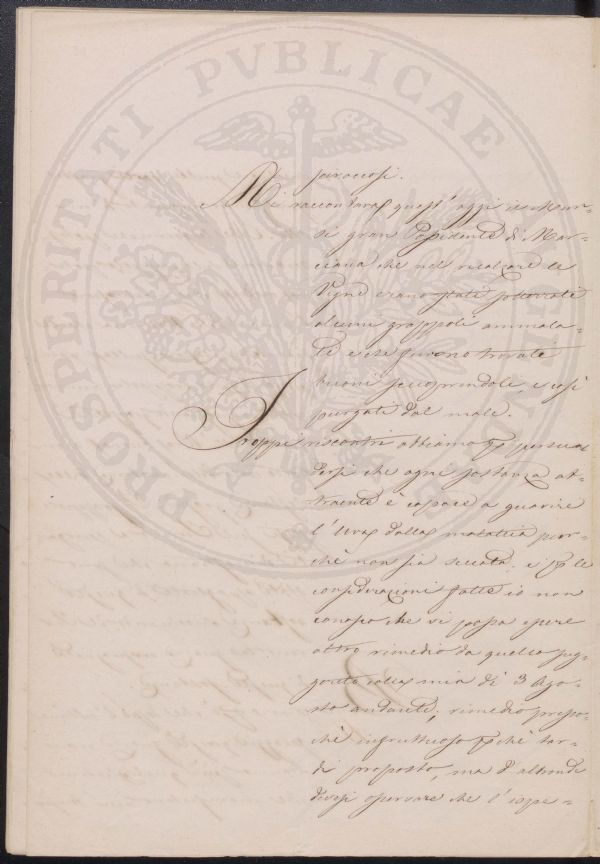 PROSPERITATI PVBLICAE AVGENDAE
Mi raccontava quest'oggi il
si gran Possidente di Mar=
ciana che nel rincalzare le
Vigne erano state sotterrati
alcuni grappoli ammala=
ti e che furono trovati
buoni scoprendole, e così
purgati dal male.
Troppi riscontri abbiamo per persua
dersi che ogni sostanza at=
traente è capace a guarire
l'Uva dalla malattia pur=
chè non sia seccata; e per le
considerazioni fatte io non
conosco che vi possa essere
altro rimedio da quello sug=
gerito colla mia di 3 Ago=
sto andante, rimedio presso=
chè infruttuoso perchè tar=
di proposto, ma d'altronde
devesi osservare che l'espe=